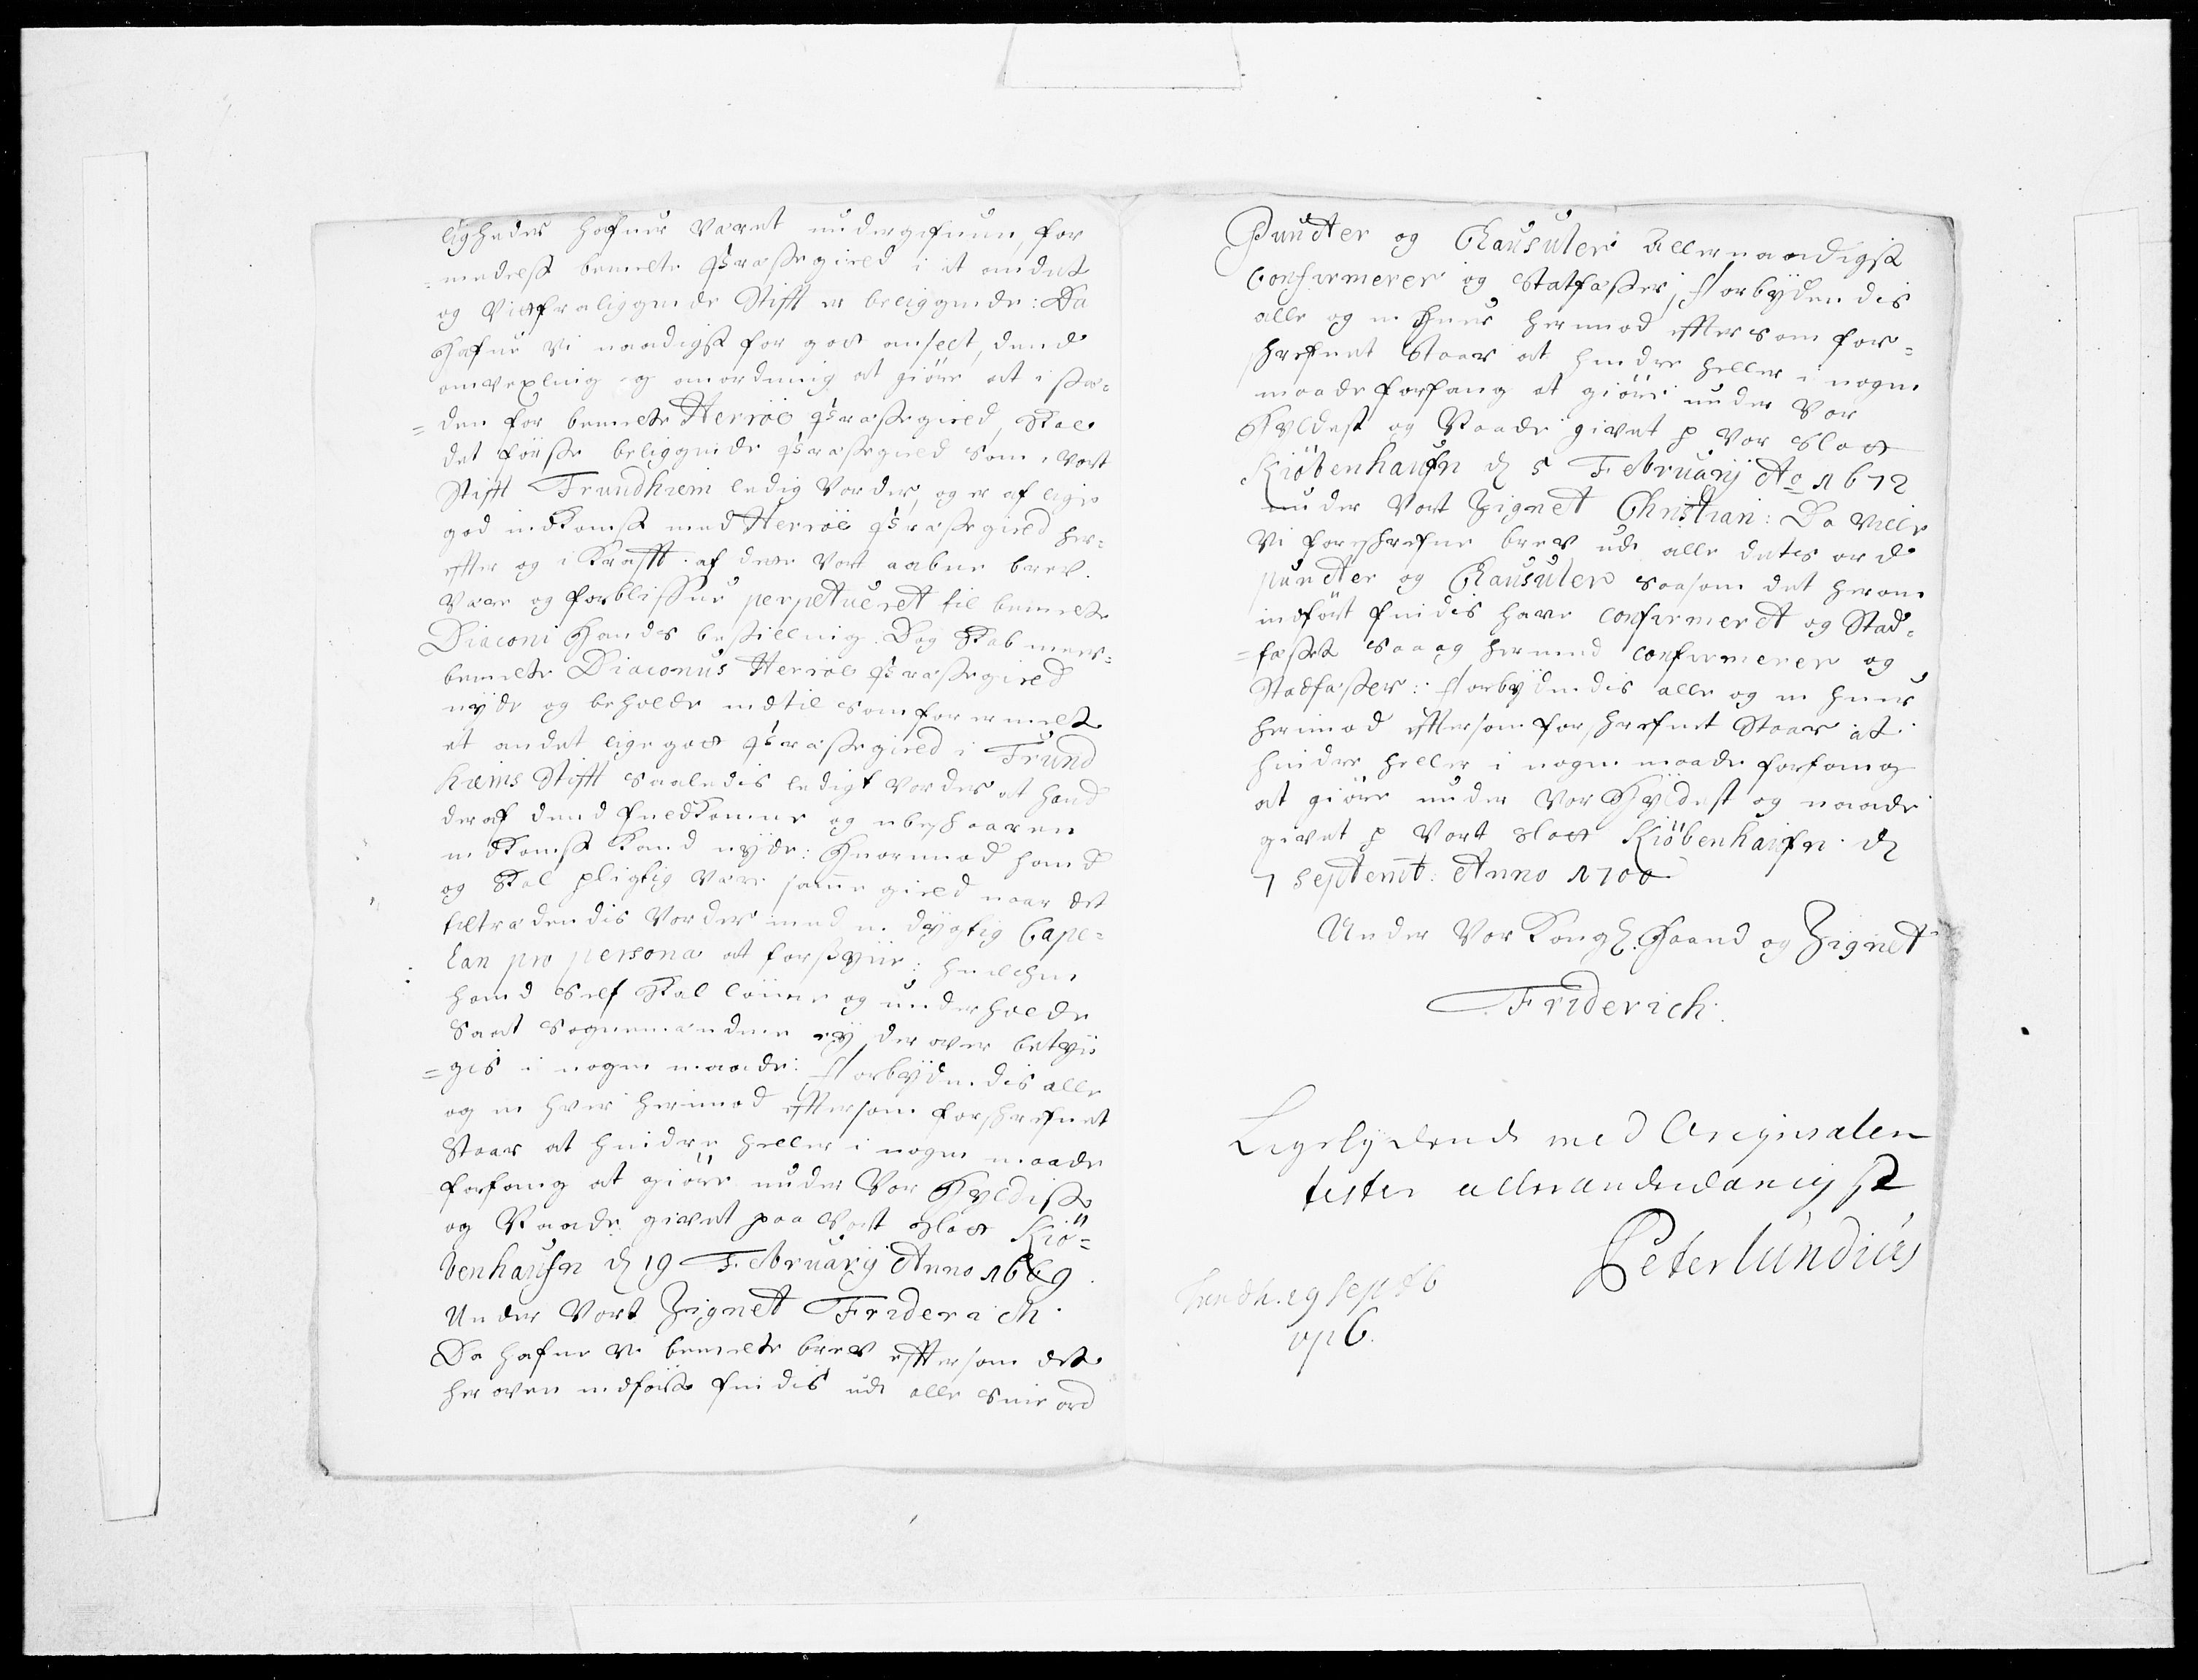 ligheder hafuer Været undergifuen, for
=medelst bemelte Præstegield i it andet
og Vitfraliggende Stifft er beliggende: Da
Hafue Vi naadigst for got anseet, dend
omvexling og anordning at giöre at i stæ=
=den for bemelte Herröe Præstegield, skal
det første beliggende Præstegield som i Vort
Stifft Trundhiem ledig Vorder, og er af lige
god indkomst med Herröe Præstegield her=
effter og i Krafft af dette Vort aabne brev
Være og forblifue perpetueret til bemelte
Diaconi Hands bestilling. Dog skal meer=
bemelte Diaconus Herröe Præstegield
nyde og beholde indtil som for er melt
et andet lige got Præstegield i Trund
hiems Stifft saaledis ledigt Vorder at hand
deraf dend fuldkomne og ubeskaaren
indkomst kand nyde: Huorimod hand
og skal pligtig Være samme gield naar det
tiltrædendis Vorder med en dygtig Cape=
lan pro persona at forsyne: huilchen
hand self skal lönne og underholde
saa at Sognemændene ey der over betyn
=gis i nogen maade: Forbydendis alle
og en hver herimod effter som forskrefuet
Staar at hindre heller i nogen maade
forfang at giöre under Vor Hyldist
og Naade givet paa Vort slot Kiö=
benhaufn d 19 Februarij Anno 1669
Under Vort Zignet Friderich
Da hafue Vi bemelte brev effter som det
her oven indført findis udi alle sine ord
Puncter og Clausuler Allernaadigst
confirmerer og Statfæster, Forbydendis
alle og en huer hermod effter som for=
skrefuet Staar at hindre heller i nogen
maade forfang at giöre under Vor
Hyldest og Naade givet p Vor slot
Kiöbenhaufn d 5 Februarij Ao 1672
under Vort Zignet Christian: Da Ville
Vi forskrefne brev udi alle dets ord
puncter og Clausuler saasom det heroven
indfört findis have confirmeret og Stad=
=fæstet saa og hermed confirmerer og
Stadfæster: Forbydendis alle og en huer
herimod effter som forskrefuet Staar at
hindre heller i nogen maade forfang
at giöre under Vor Hyldest og naade
givet p Vort slot Kiöbenhaufn d
7 Septemb: Anno 1700
Under Vor Kongl. Haand og Zignet
Friderich.
Ligelydende med Originalen
tester allerunderdanigst
Peter Lundius
29 sept